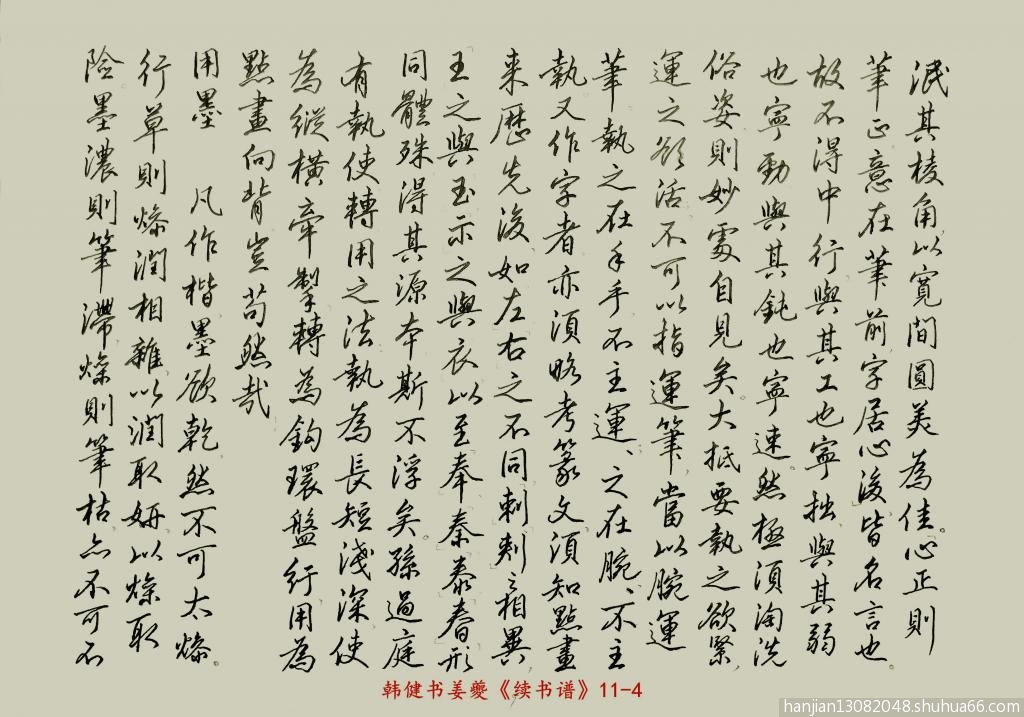 泯其棱角以寬閒圓美為佳心正則
筆正意在筆前字居心後皆名言也
故不得中行與其工也寧拙與其弱
也寧勁與其鈍也寧速然極須淘洗
俗姿則妙處自見矣大抵要執之欲緊
運之欲活不可以指運筆當以腕運
筆執之在手手不主運、之在腕、不主
執又作字者亦須略考篆文須知點畫
来歷先後如左右之不同刺剌之相異
王之與玉示之與衣以至奉秦泰春形
同體殊得其源本斯不浮矣孫過庭
有執使轉用之法執為長短淺深使
為縱橫牽掣轉為鈎環盤紆用為
點畫向背豈苟然哉
用墨 凡作楷墨欲乾然不可太燥
行草則燥潤相雜以潤取妍以燥取
險墨濃則筆滯燥則筆枯亦不可不
韩健书姜夔《续书谱》11-4
hanjian13082048.shuhua66.com